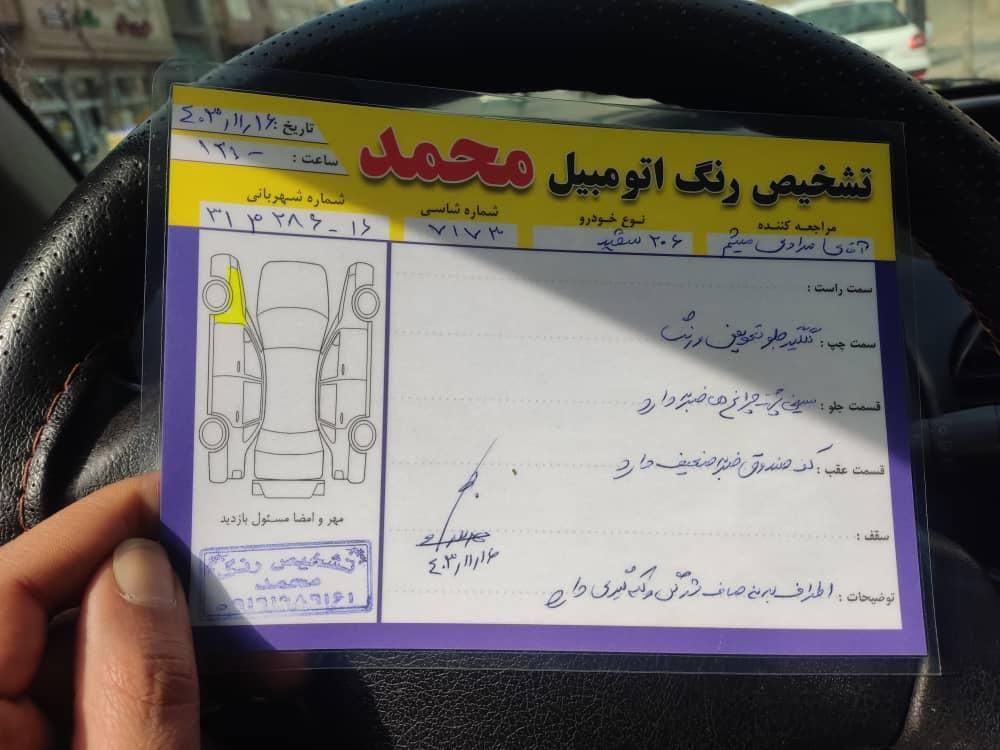 تشخیص رنگ اتومبیل محمد
تاریخ : ۴۰۳/۱۱/۱۶
ساعت : ۱۲/-
مراجعه کننده
آقای مرادی میثم
نوع خودرو
۲۰۶ سفید
شماره شاسی
۷۱۷۳
شماره شهربانی
۳۱ م ۲۸۶ - ۱۶
سمت راست :
سمت چپ : گلگیر جلو تعویض و رنگ
قسمت جلو : سینی پشت چراغ ها ضربه دارد
قسمت عقب : کف صندوق ضربه ضعیف دارد
سقف :
توضیحات : اطراف بدنه صاف و لکه گیری دارد
مهر و امضا مسئول بازدید
تشخیص رنگ
محمد
۴۰۳/۱۱/۱۶